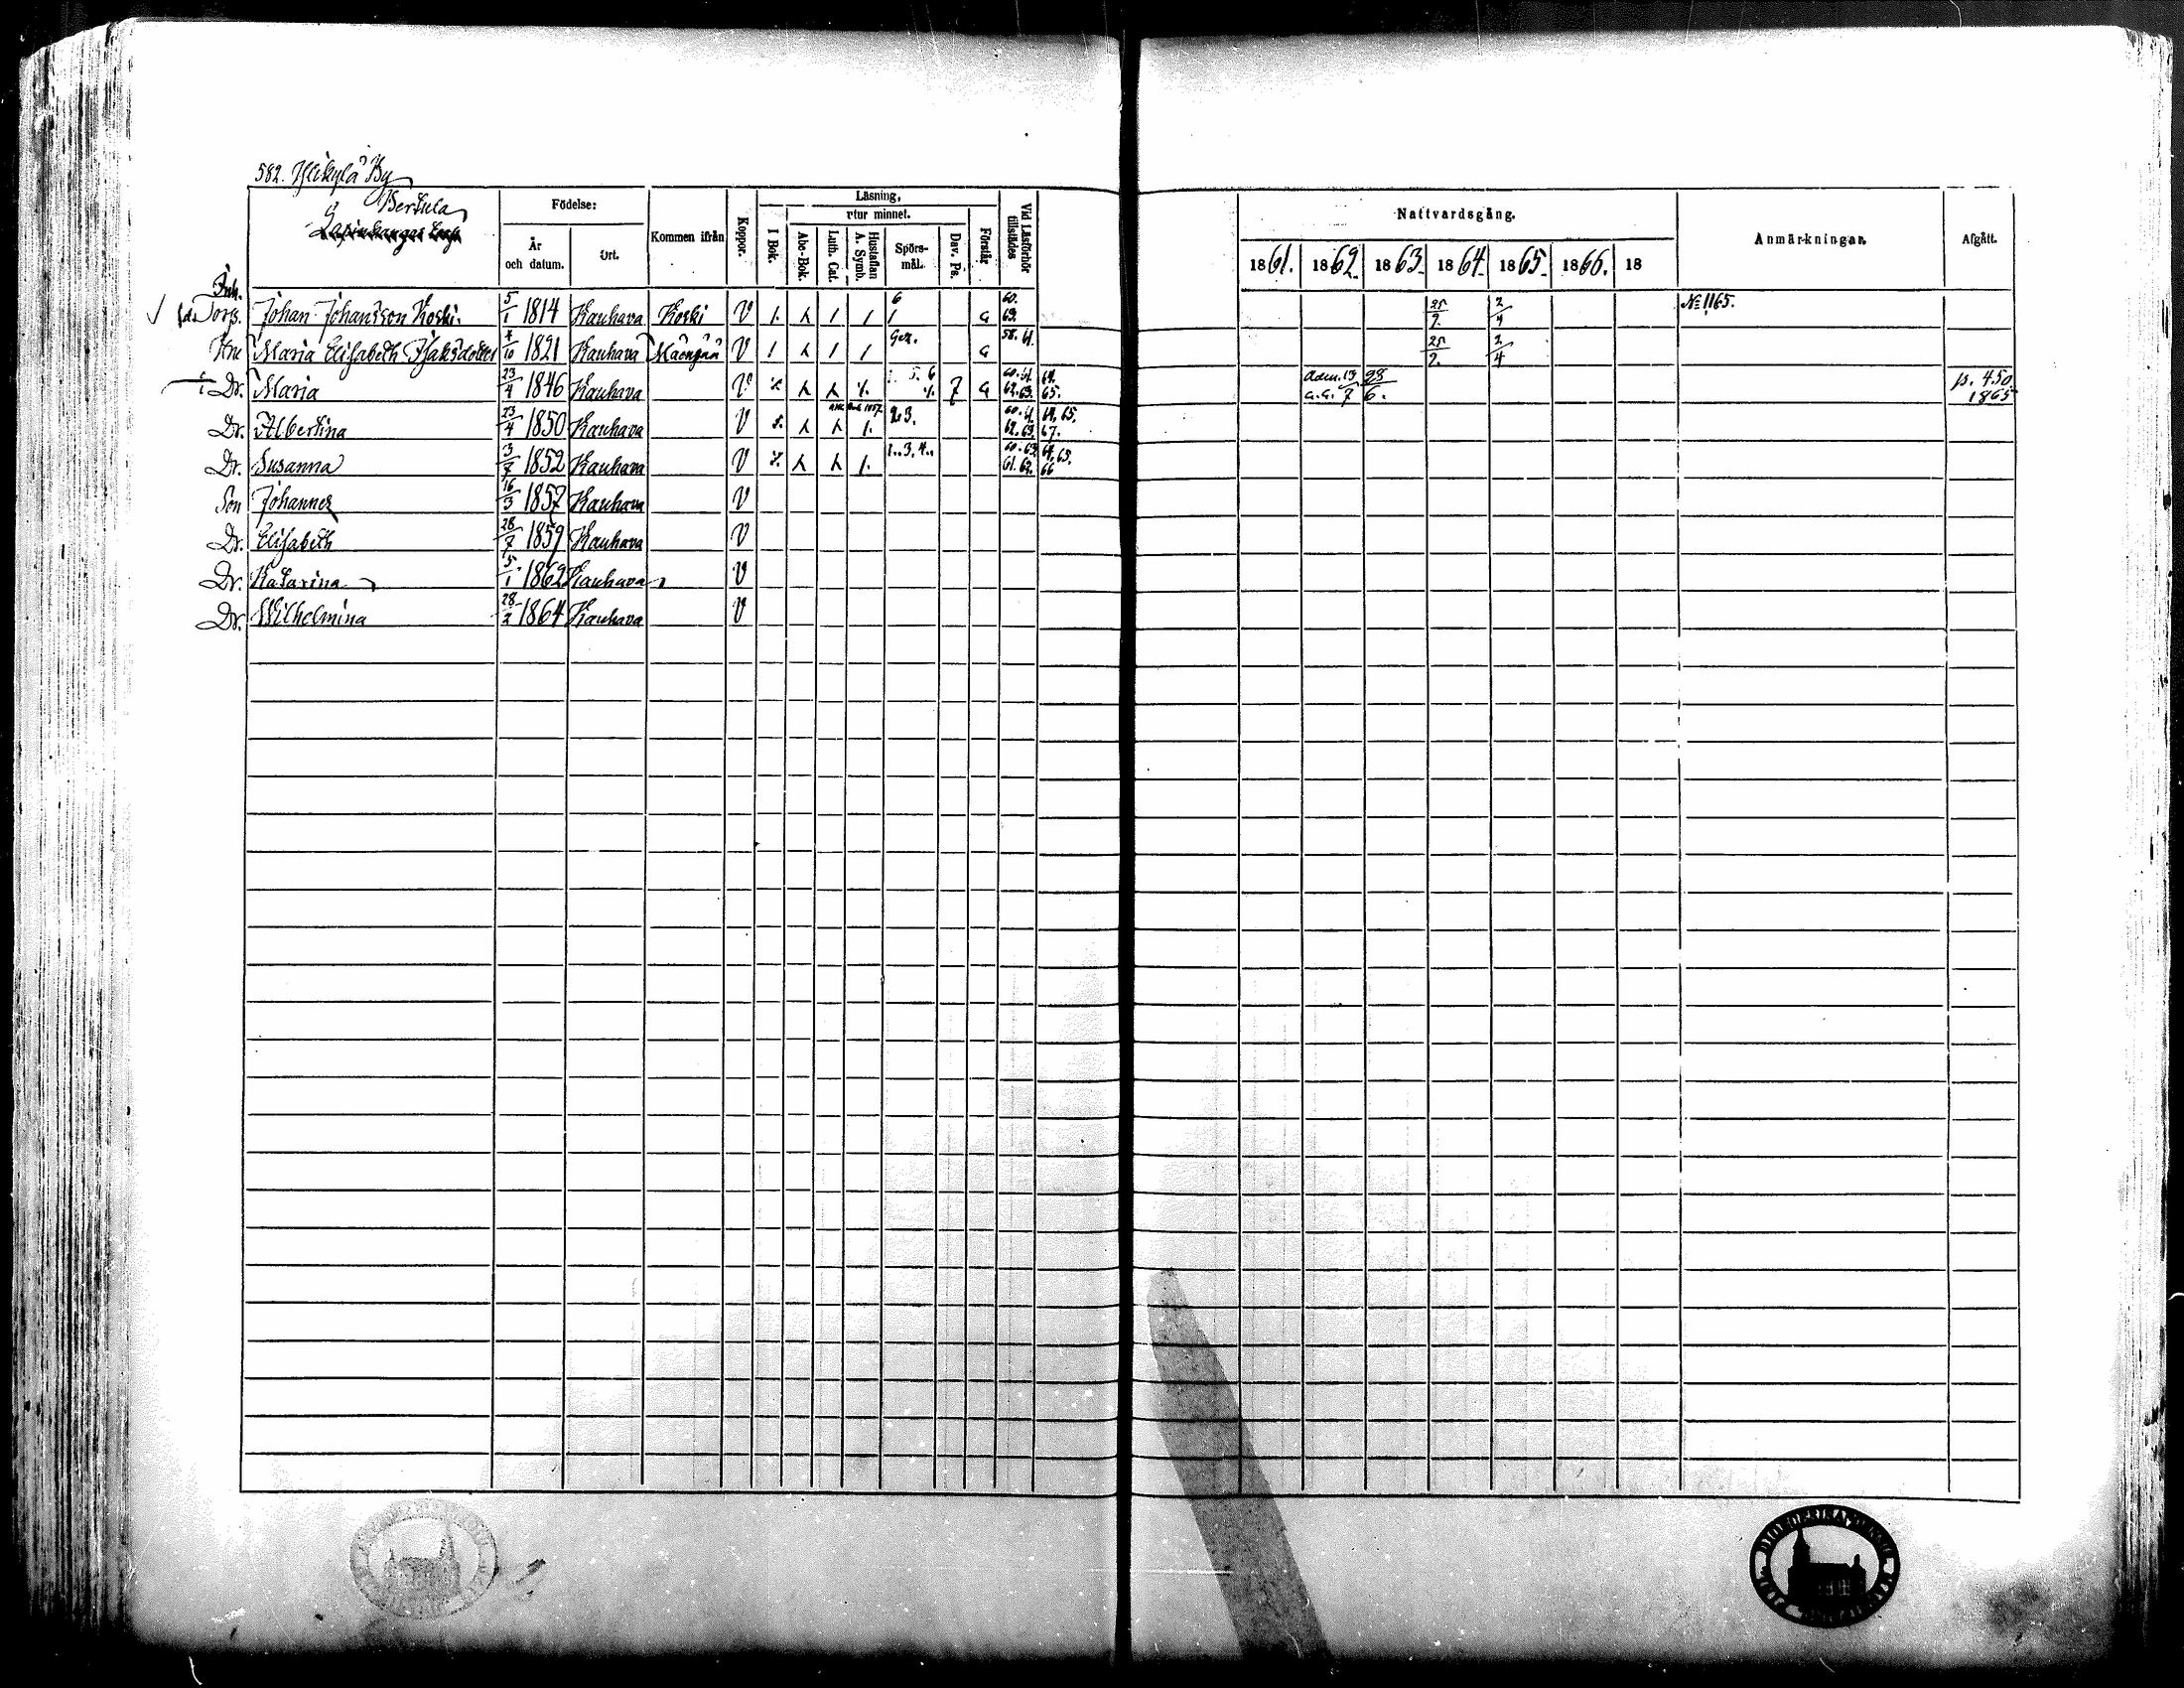 582. Ylikylä By
Bertula
Födelse:
År och datum.
Ort.
Kommen ifrån
Koppor.
Läsning,
I Bok.
utur minnet.
Abc-Bok.
Luth. Cat.
Hustaflan A. Symb.
Spörsmål.
Dav. Ps.
Förstår
Vid Läsförhör tillstädes
Nattvardsgång.
1861. 1862. 1863. 1864. 1865. 1866. 18
Anmärkningar.
Afgått.
Inh.
Torp. Johan Johansson Koski. 5/1 1814 Kauhava Koski V 6 60. 63. 25/2. 2/4 No 1165.
Hru Maria Elisabeth Isaksdotter 4/10 1821 Kauhava V 58. 61. 25/2. 2/4
Dr. Maria 23/4 1846 Kauhava V 5. 6 7 60. 61. 64. 62. 63. 65. Adm. 19/7 28/6. p. 450 1865
Dr. Albertina 23/4 1850 Kauhava V 2. 3. 60. 61. 64. 65. 62. 63. 67.
Dr. Susanna 3/7 1852 Kauhava V 1.. 3. 4.. 60. 63. 64. 65. 61. 62. 66
Son Johannes 16/3 1857 Kauhava V
Dr. Elisabeth 28/7 1859 Kauhava V
Dr. Katarina 5/1 1862 Kauhava V
Dr. Wilhelmina 28/2 1864 Kauhava V